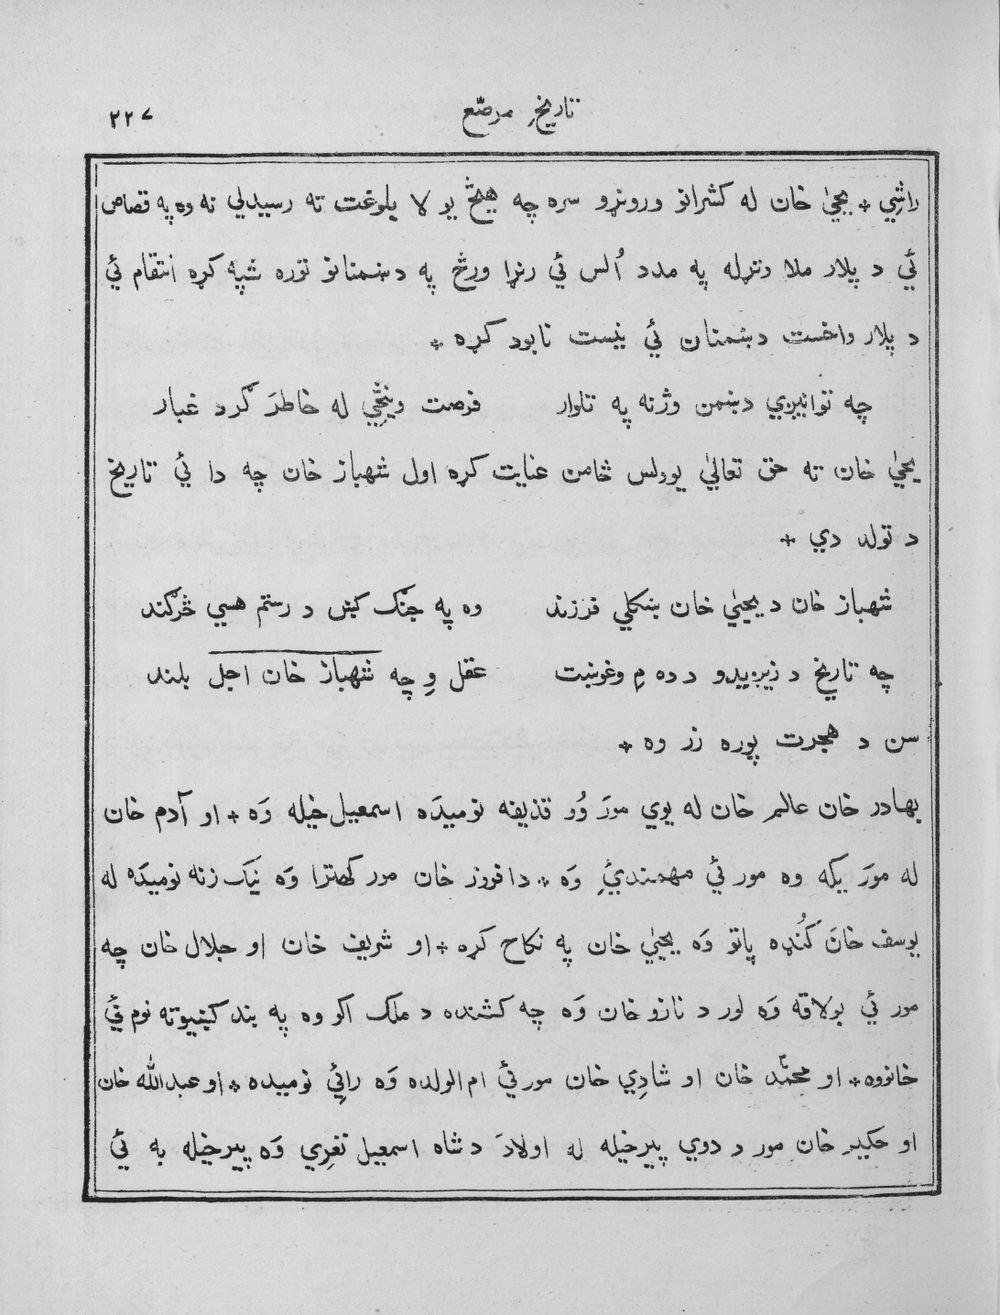 تاریخِ مرصّع ۲۲۷
راشِي + یحییٰ خان له کشرانو ورونړو سره چه هیڅ یو لا بلوغت ته رسیدلي نه وه په قصاص
ئي د پلار ملا وتړله په مدد اُلس ئي رنړا ورځ په دښمنانو توره شپه کړه انتقام ئي
د پلار واخست دښمنان ئي نیست نابود کړه +
چه توانیږي دښمن وژنه په تلوار فرصت وینځي له خاطرَ ګرد غبار
یحییٰ خان ته حق تعالیٰ یوولس ځامن عنایت کړه اول شهباز خان چه دا ئي تاریخ
د تولد دي +
شهباز خان د یحییٰي خان ښکلي فرزند وه په جنګ کښ د رستم هسي څرګند
چه تاریخ د زیږیدو د ده مِ وغوښت عقل وِ چه شهباز خان اجل بلند
سن د هجرت پوره زر وه +
بهادر خان عالم خان له یوي مورَ وُو قذیفه نومیدَه اسمعیل خیله وَه + او آدم خان
له مورَ یکه وه مور ئي مهمندئِ وَه + د افروز خان مور کهتڼرا وَه نیَک زنه نومیدَه له
یوسف خانَ کُنډه پاتو وَه یحییٰي خان په نکاح کړه + او شریف خان او جلال خان چه
مور ئي بولاقه وَه لور د نازو خان وَه چه کشنده د ملک اکو وه په بند کښیوته نوم ئئ
خانزوه + او محمّد خان او شادِي خان مور ئي ام الولده وَه رائي نومیده + او عبدالله خان
او حکیم خان مور د دوي پیرخیله له اولادَ د شاه اسمعیل تغرِي وَه پیرخیله به ئي